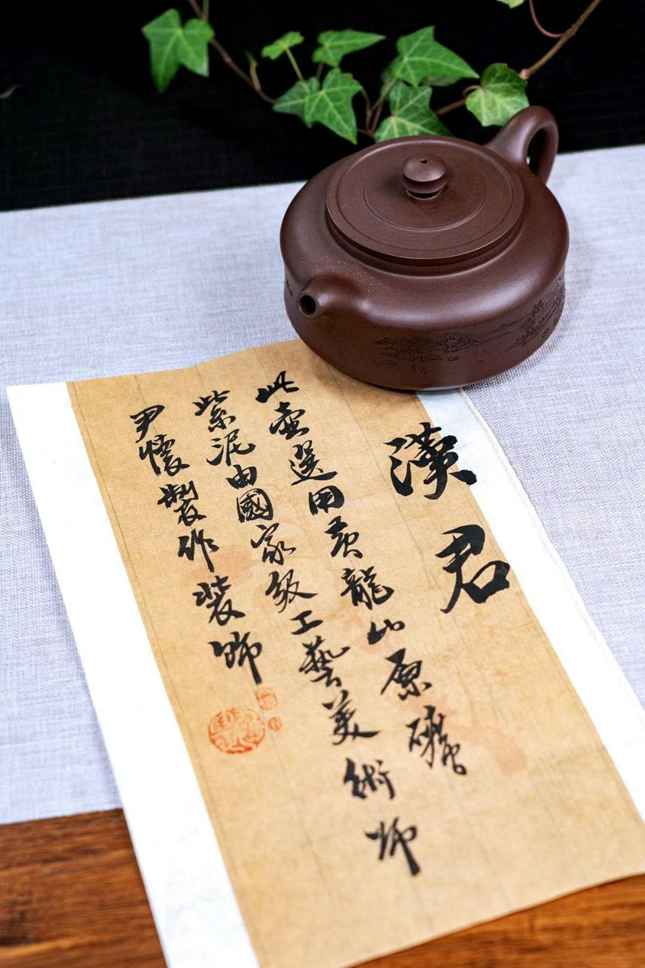 漢君
此壺選用黄龍山原礦
紫泥由國家級工藝美術師
尹懷製作裝飾